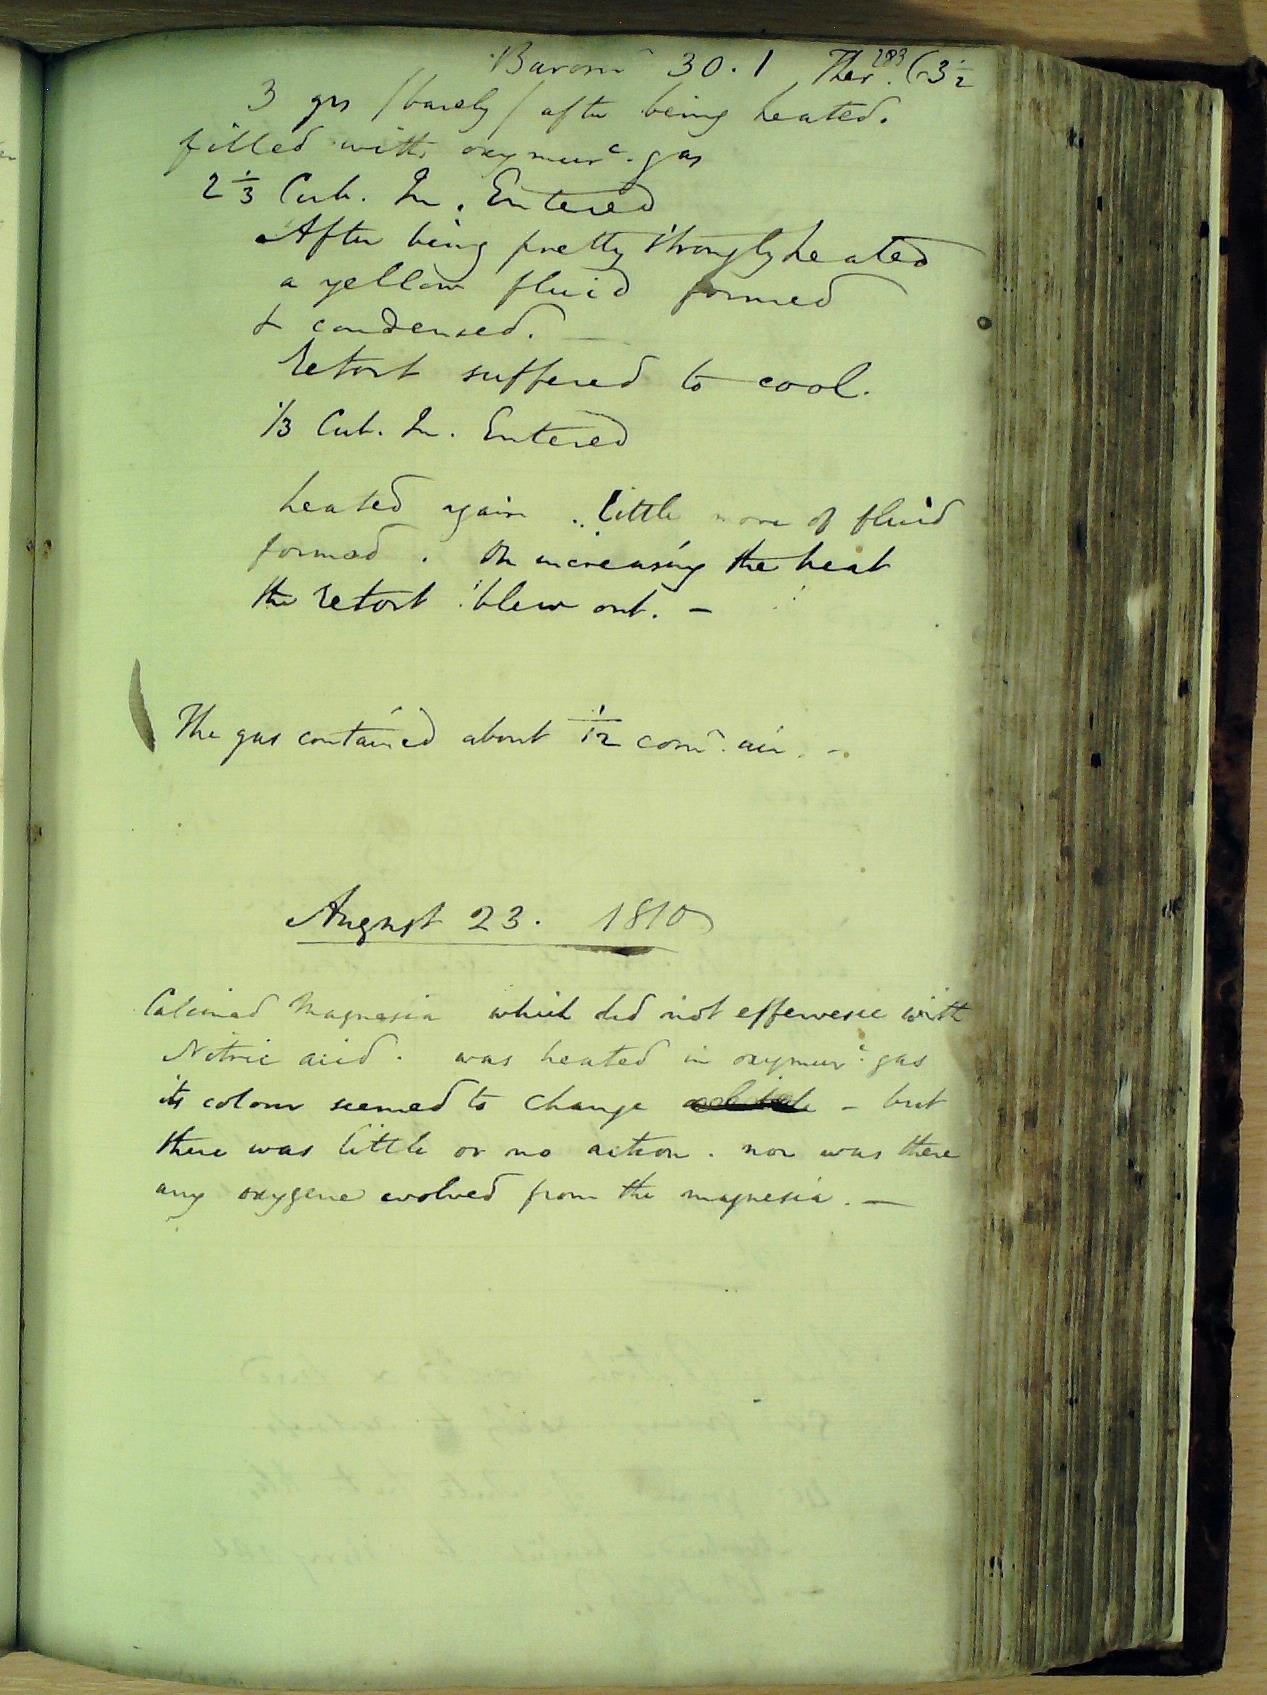 283
Barom^r 30.1 Ther. 63 1/2
3 grs /barely/ after being heated.
filled with oxymur^c. gas
2 1/3 Cub. In. Entered
After being pretty strongly heated
a yellow fluid formed
& condensed.
Retort suffered to cool.
1/3 Cub. In. Entered
heated again . little more of fluid
formed . On increasing the heat
the retort blew out. -
The gas contained about 1/12 com^n. air. -
August 23. 1810
Calcined Magnesia which did not effervesce with
Nitric acid. was heated in oxymur^c. gas
its colour seemed to change a little - but
there was little or no action. nor was there
any oxygene evolved from the magnesia. -